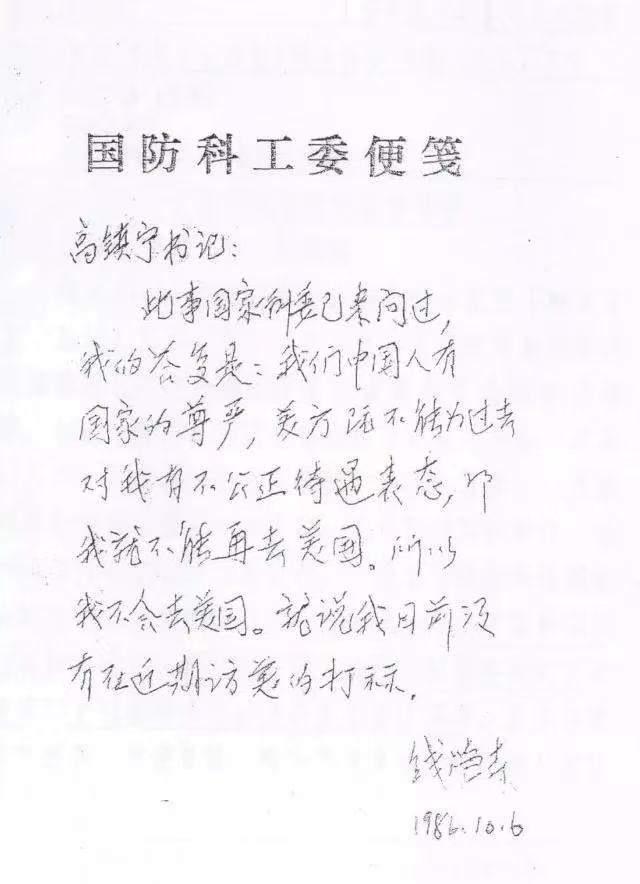 国防科工委便笺
高镇宁书记：
此事国家科委已来问过，
我的答复是：我们中国人有
国家的尊严，美方既不能为过去
对我有不公正待遇表态，那
我就不能再去美国。所以
我不会去美国。就说我目前没
有在近期访美的打算。
钱学森
1986.10.6